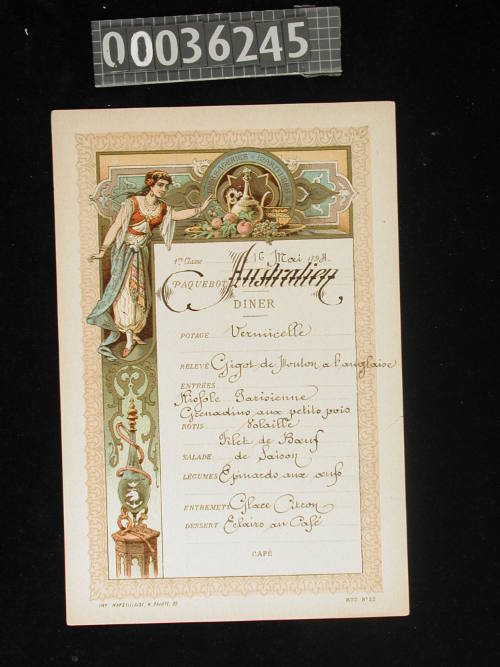 00036245
MESSAGERIES MARITIMES
1re Classe 16 Mai 1894.
PAQUEBOT Australien
DINER
POTAGE Vermicelle
RELEVÉ Gigot de Mouton a l'anglaise
ENTRÉES
Rissole Parisienne
Grenadins aux petits pois
ROTIS Volaille
Filet de Bœuf
SALADE de Saison
LÉGUMES Epinards aux œufs
ENTREMETS Glace Citron
DESSERT Eclairs au Café
CAFÉ
IMP. MARSEILLAISE, R. SAINTE, 39
MOD. Nº 22